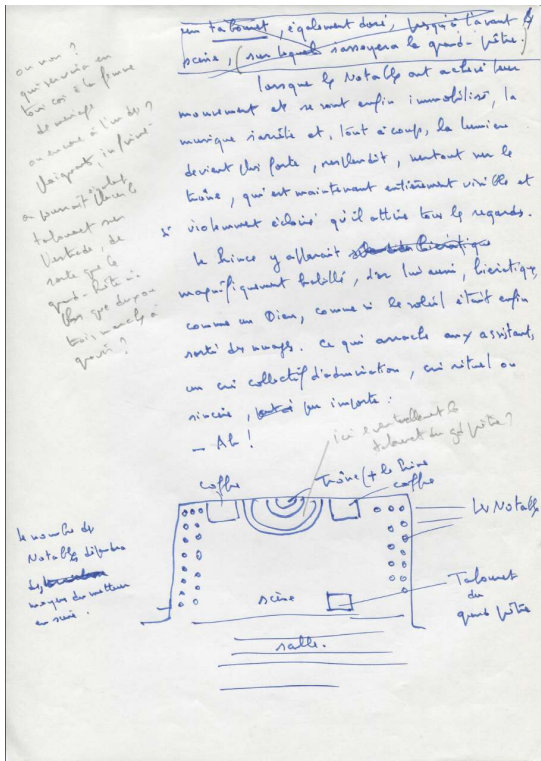 un tabouret, également doré, jusqu'à l'avant
scène, (sur lequel s'assoyera le grand-prêtre.)
lorsque les Notables ont achevé leur
mouvement et se sont enfin immobilisés, la
musique s'arrête et, tout à coup, la lumière
devient plus forte, resplendit, surtout sur le
trône, qui est maintenant entièrement visible et
violemment éclairé qu'il attire tous les regards.
le Prince y apparait
magnifiquement habillé, d'or lui aussi, hiératique,
comme un Dieu, comme si le soleil était enfin
sorti des nuages. Ce qui arrache aux assistants,
un cri collectif d'admiration, cri rituel ou
sincère, peu importe :
– Ah !
ou non ?
qui servira en
tout cas à la femme
de
ou encore à l'un des ?
on pourrait également
placer le
tabouret sur
l'estrade, de
sorte que le
grand-prêtre n'a
plus que deux ou
trois marches à
gravir ?
ici éventuellement le
tabouret du gd prêtre ?
coffre
trône (+ le Prince
coffre
Les Notables
le nombre des
Notables dépendra
des
moyens du metteur
en scène.
scène
Tabouret
du
grand prêtre
salle.